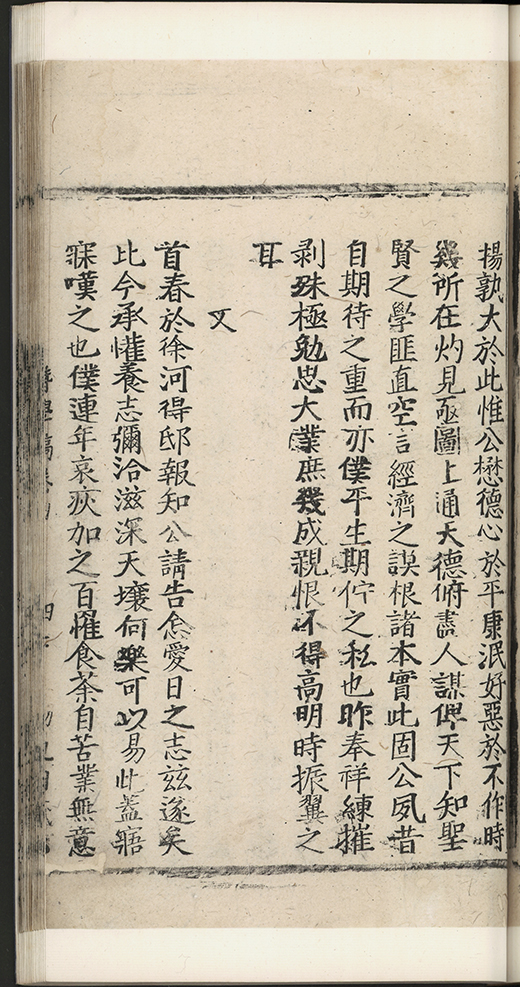 揚孰大於此惟公懋德心於平康泯好惡於不作時
幾所在灼見亟圖上通天德俯盡人謀俾天下知聖
賢之學匪直空言經濟之謨根諸本實此固公夙昔
自期待之重而亦僕平生期佇之私也昨奉祥練摧
剥殊極勉忠大業庶幾成親恨不得高明時振翼之
耳
又
首春於徐河得邸報知公請告愈愛日之志茲遂矣
比今承懽養志彌洽滋深天壤何樂可以易此蓋寤
寐嘆之也僕連年哀疚加之百罹食荼自苦業無意